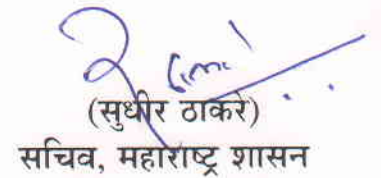 (सुधीर ठाकरे)
सचिव, महाराष्ट्र शासन